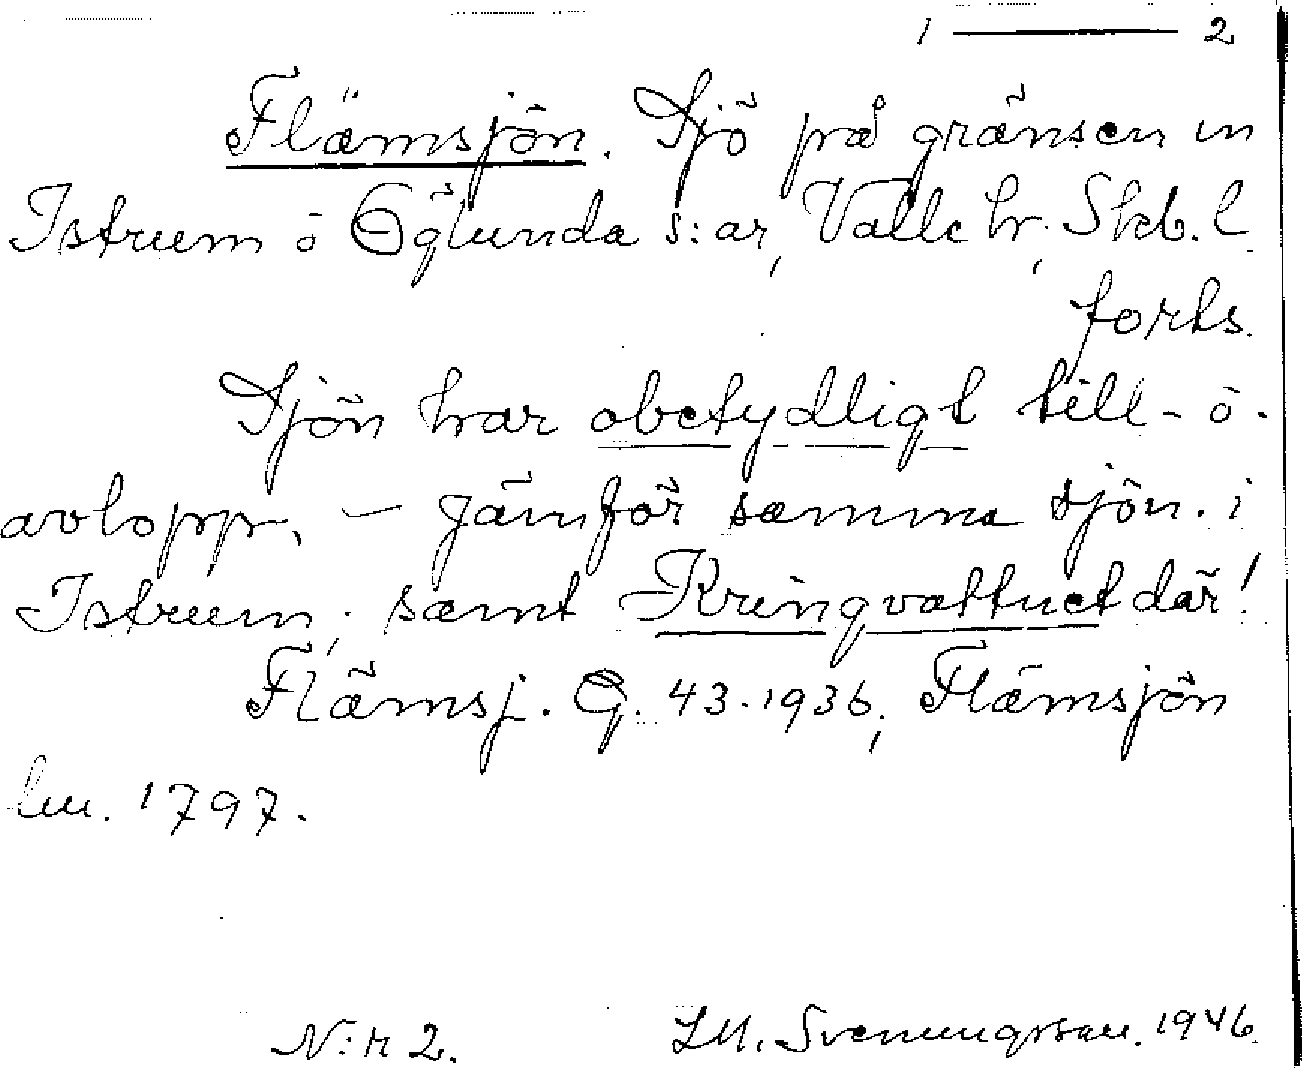 1 — 2
Flämsjön. Sjö på gränsen m
Istrum o Öglunda s:ar, Valle hr, Skb. l.
forts.
Sjön har obetydligt till- o.
avlopp. — Jämför samma sjön i
Istrum, samt Kringvattnet där!
Flämsj. G. 43. 1936, Flämsjön
lm. 1797.
N:r 2. LM. Svenungsson. 1946.